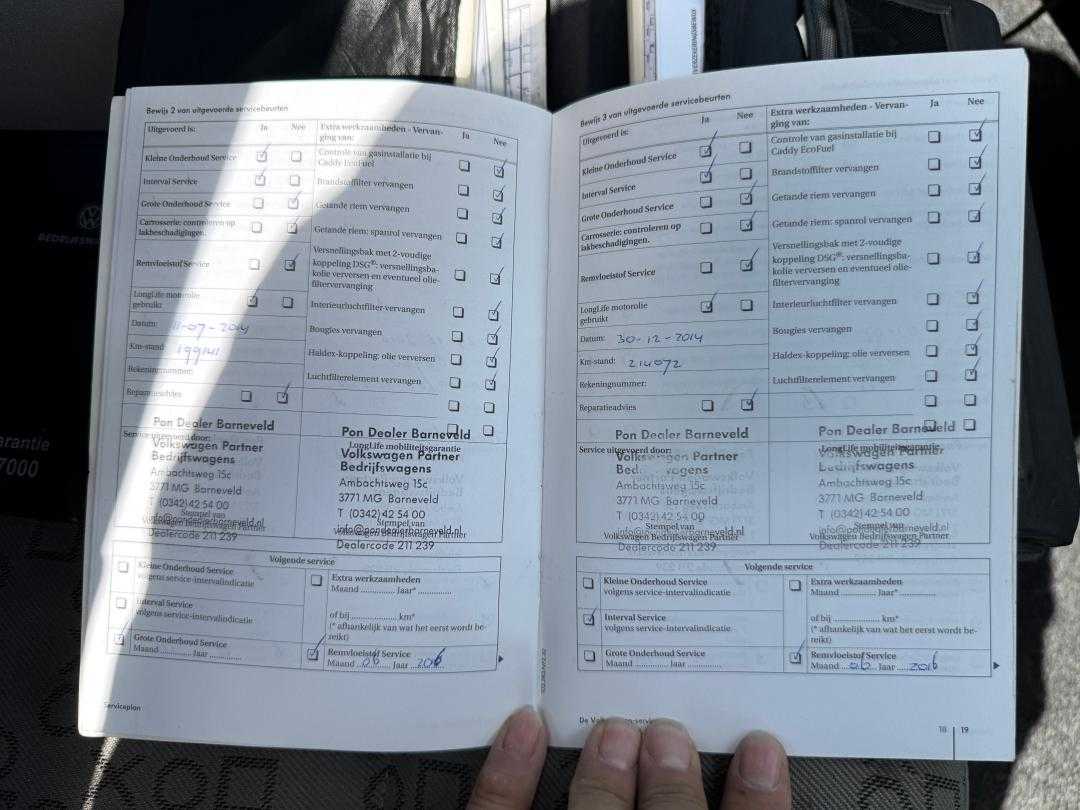 VERZEKERINGSBEWIJS
BEDRIJFSW
arantie
7000
Bewijs 2 van uitgevoerde servicebeurten
Uitgevoerd is: Ja Nee
Extra werkzaamheden - Vervan-
ging van: Ja Nee
Kleine Onderhoud Service
Interval Service
Grote Onderhoud Service
Carrosserie: controleren op
lakbeschadigingen.
Remvloeistof Service
LongLife motorolie
gebruikt
Datum: 11-07-2014
Km-stand: 199141
Rekeningnummer:
Reparatieadvies
Controle van gasinstallatie bij
Caddy EcoFuel
Brandstoffilter vervangen
Getande riem vervangen
Getande riem: spanrol vervangen
Versnellingsbak met 2-voudige
koppeling DSG®: versnellingsba-
kolie verversen en eventueel olie-
filtervervanging
Interieurluchtfilter vervangen
Bougies vervangen
Haldex-koppeling: olie verversen
Luchtfilterelement vervangen
Service uitgevoerd door:
Pon Dealer Barneveld
Volkswagen Partner
Bedrijfswagens
Ambachtsweg 15c
3771 MG Barneveld
T (0342) 42 54 00
Stempel van
info@pondealerbarneveld.nl
Volkswagen Bedrijfswagen Partner
Dealercode 211 239
Pon Dealer Barneveld
LongLife mobiliteitsgarantie
Volkswagen Partner
Bedrijfswagens
Ambachtsweg 15c
3771 MG Barneveld
T (0342) 42 54 00
Stempel van
info@pondealerbarneveld.nl
Volkswagen Bedrijfswagen Partner
Dealercode 211 239
Volgende service
Kleine Onderhoud Service
volgens service-intervalindicatie
Interval Service
volgens service-intervalindicatie
Grote Onderhoud Service
Maand ............ Jaar ............
Extra werkzaamheden
Maand ............ Jaar* ............
of bij ............ km*
(* afhankelijk van wat het eerst wordt be-
reikt)
Remvloeistof Service
Maand 06 Jaar 2016
Serviceplan
Bewijs 3 van uitgevoerde servicebeurten
Uitgevoerd is: Ja Nee
Extra werkzaamheden - Vervan-
ging van: Ja Nee
Kleine Onderhoud Service
Interval Service
Grote Onderhoud Service
Carrosserie: controleren op
lakbeschadigingen.
Remvloeistof Service
LongLife motorolie
gebruikt
Datum: 30-12-2014
Km-stand: 214072
Rekeningnummer:
Reparatieadvies
Controle van gasinstallatie bij
Caddy EcoFuel
Brandstoffilter vervangen
Getande riem vervangen
Getande riem: spanrol vervangen
Versnellingsbak met 2-voudige
koppeling DSG®: versnellingsba-
kolie verversen en eventueel olie-
filtervervanging
Interieurluchtfilter vervangen
Bougies vervangen
Haldex-koppeling: olie verversen
Luchtfilterelement vervangen
Pon Dealer Barneveld
Service uitgevoerd door:
Volkswagen Partner
Bedrijfswagens
Ambachtsweg 15c
3771 MG Barneveld
T (0342) 42 54 00
Stempel van
info@pondealerbarneveld.nl
Volkswagen Bedrijfswagen Partner
Dealercode 211 239
Pon Dealer Barneveld
LongLife mobiliteitsgarantie
Volkswagen Partner
Bedrijfswagens
Ambachtsweg 15c
3771 MG Barneveld
T (0342) 42 54 00
Stempel van
info@pondealerbarneveld.nl
Volkswagen Bedrijfswagen Partner
Dealercode 211 239
Volgende service
Kleine Onderhoud Service
volgens service-intervalindicatie
Interval Service
volgens service-intervalindicatie
Grote Onderhoud Service
Maand ............ Jaar ............
Extra werkzaamheden
Maand ............ Jaar* ............
of bij ............ km*
(* afhankelijk van wat het eerst wordt be-
reikt)
Remvloeistof Service
Maand 06 Jaar 2016
18 19